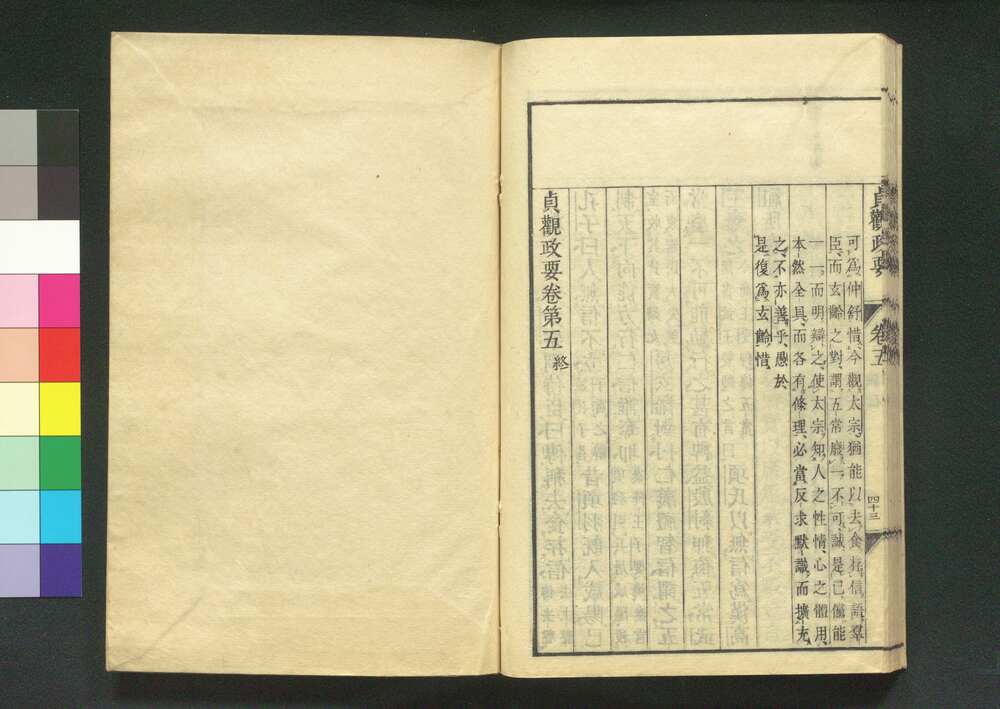 貞觀政要 卷五 四十三
可爲仲舒惜、今觀太宗、猶能以去食存信語羣
臣、而玄齡之對、謂五常廢一不可、誠是已、儻能
一一而明辯之、使太宗知人之性情、心之體用、
本然全具、而各有條理、必當反求默識、而擴充
之、不亦善乎、愚於
是復爲玄齡惜、
貞觀政要卷第五 終